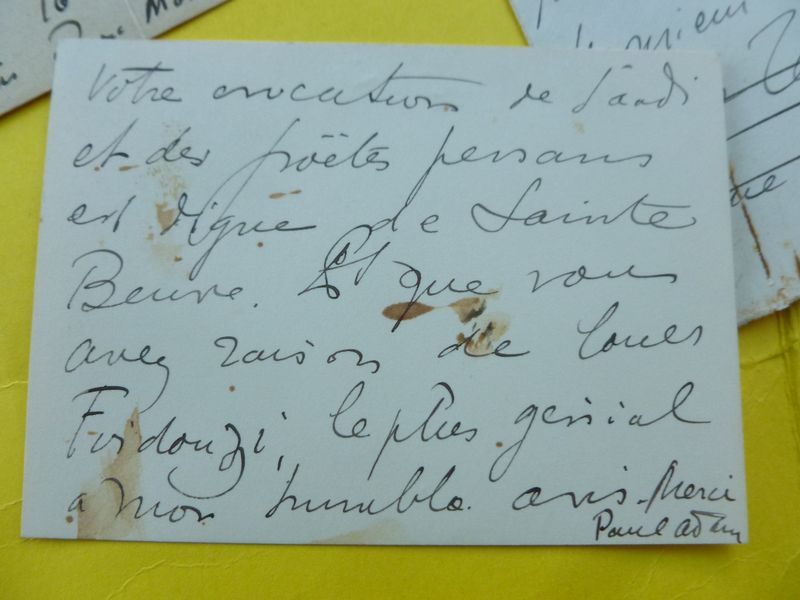 Votre evocation de Saadi
et des poëtes persans
est digne de Sainte
Beuve. Et que vous
avez raison de louer
Firdouzi, le plus génial
a mon humble avis. Merci
Paul Adam